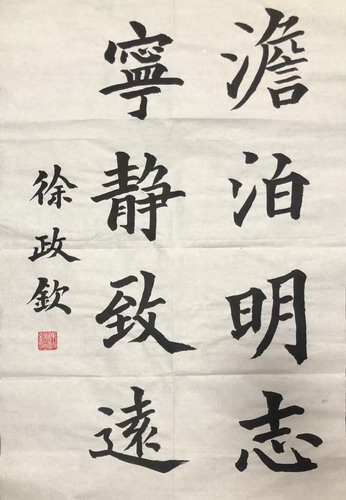 澹泊明志
寧靜致遠
徐政欽